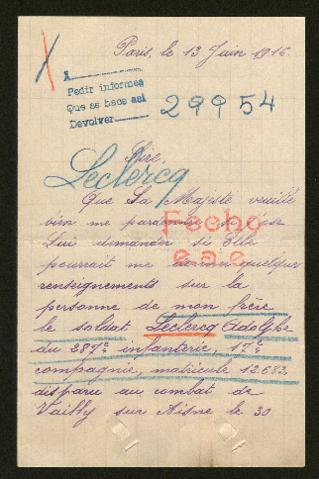 Paris, le 13 Juin 1916.
A
Pedir informes
Que se hace asi
Devolver
29954
Sire,
Leclercq
Que Sa Majesté veuille
bien me pardonner si j'ose
Fecho
Lui demander si Elle
pourrait me donner quelques
renseignements sur la
personne de mon frère
le soldat Leclercq Adolphe
du 287e infanterie, 17e
compagnie, matricule 12.682,
disparu au combat de
Vailly sur Aisne le 30